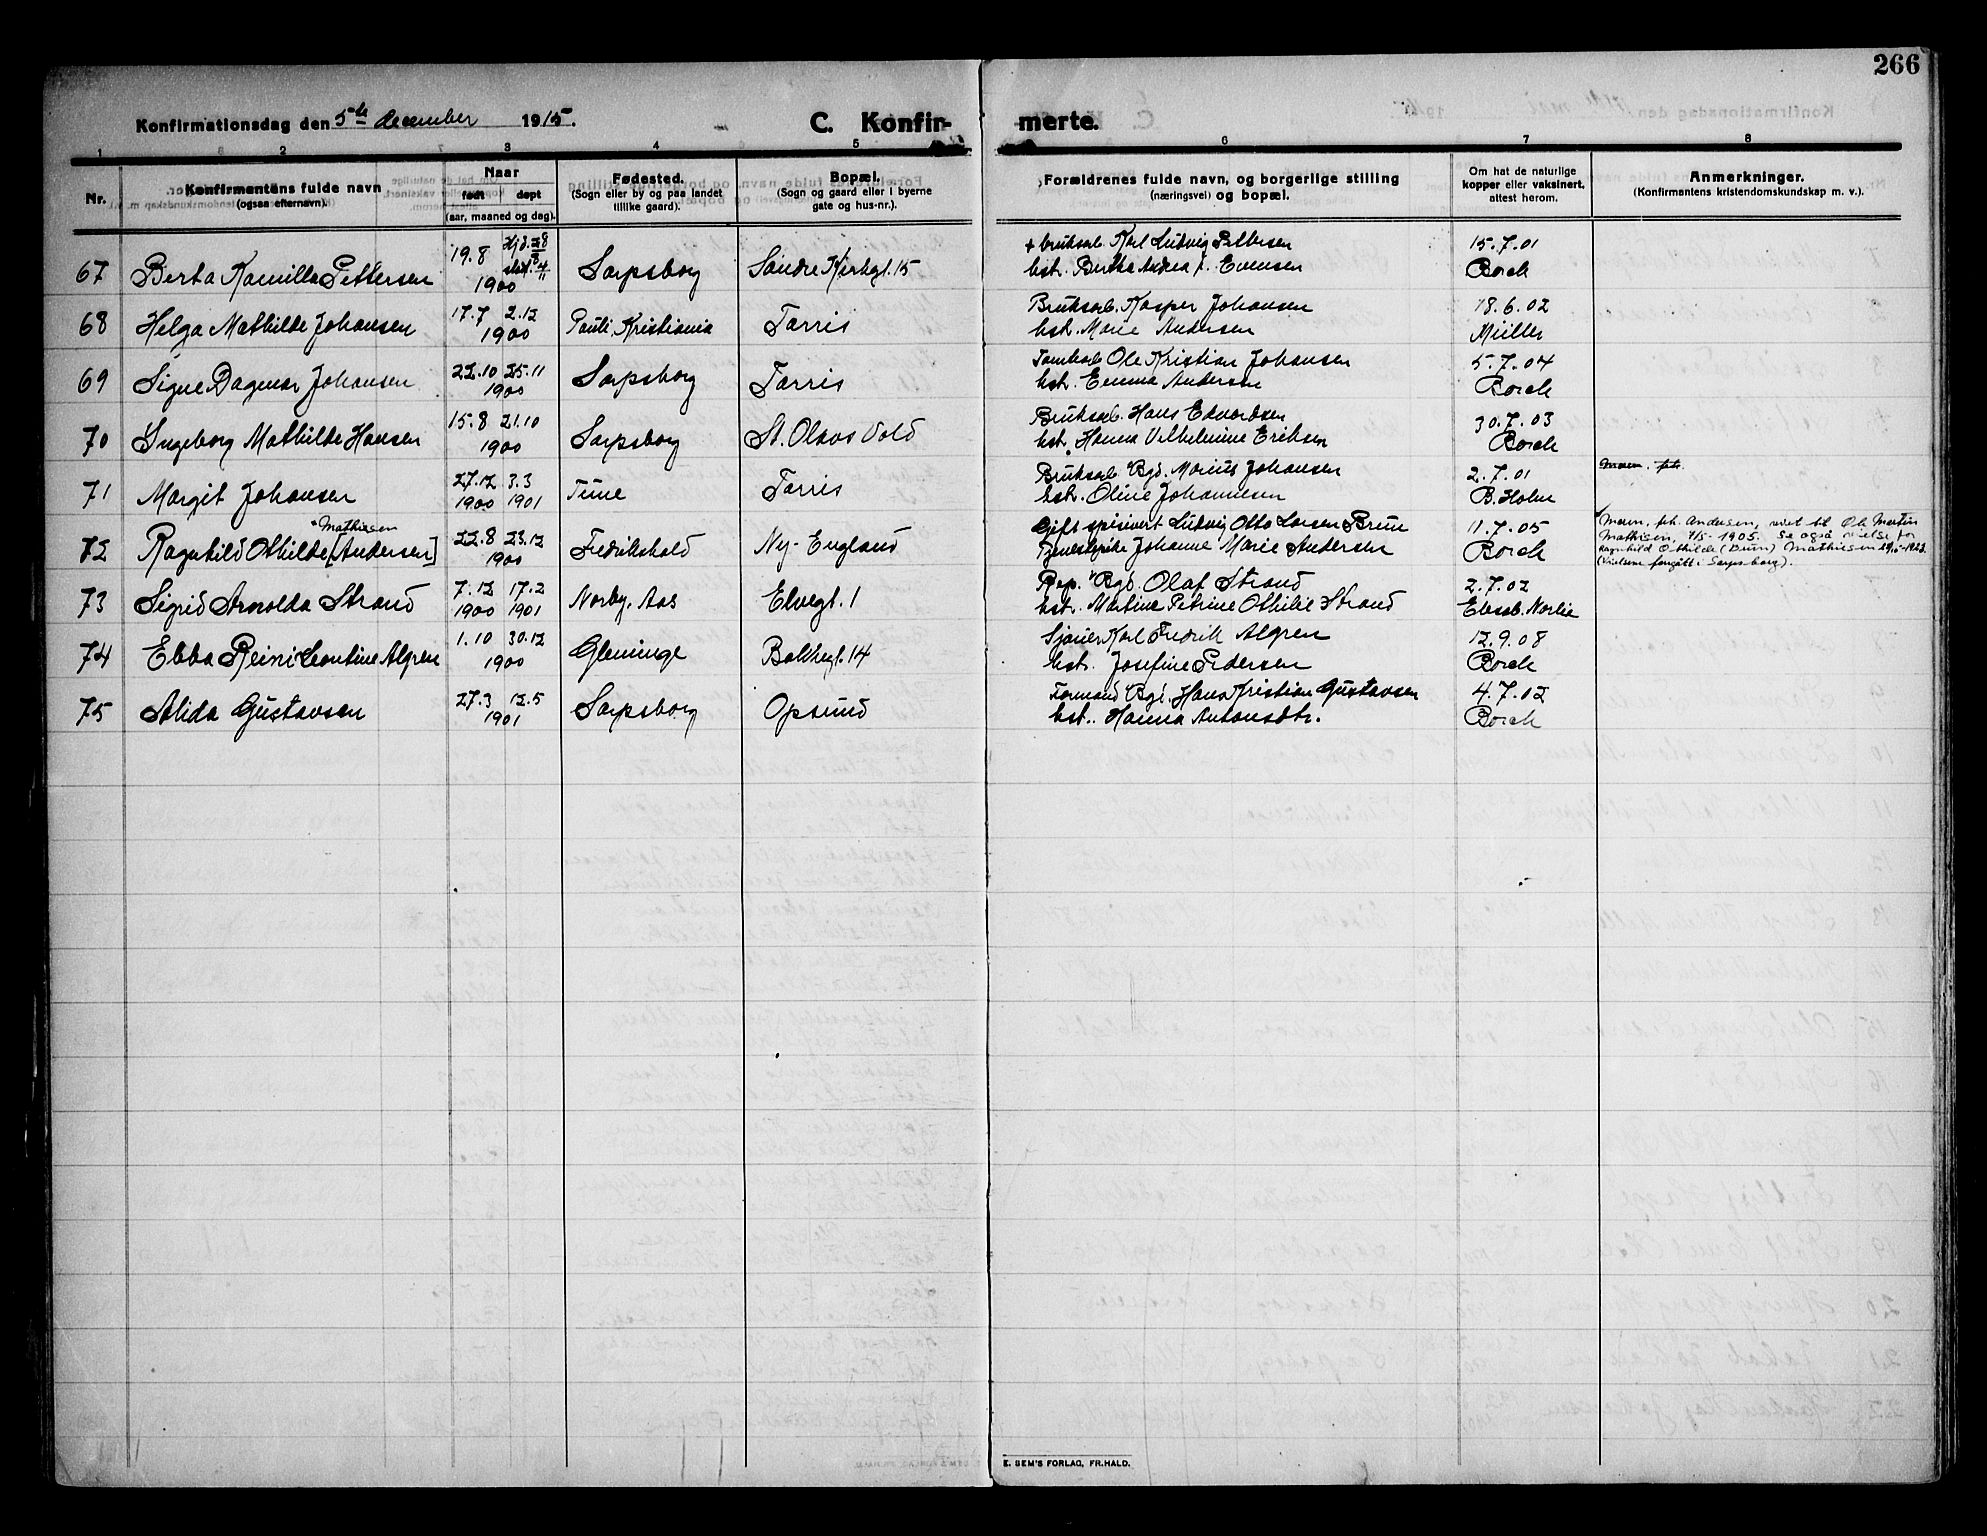 266
Konfirmationsdag den 5te december 1915.
C. Konfir- merte.
1 2 3 4 5 6 7 8
Nr.
Konfirmentens fulde navn
(ogsaa efternavn).
Naar
født døpt
(aar, maaned og dag).
Fødested.
(Sogn eller by og paa landet
tillike gaard).
Bopæl.
(Sogn og gaard eller i byerne
gate og hus-nr.).
Forældrenes fulde navn, og borgerlige stilling
(næringsvei) og bopæl.
Om hat de naturlige
kopper eller vaksinert,
attest herom.
Anmerkninger.
(Konfirmantens kristendomskundskap m. v.).
19.8 Hjd. 28/8 + bruksarb. Karl Ludvig Pettersen 15.7.01
67 Berta Kamilla Pettersen stadf. 4/11 1900 Sarpsborg Søndre Kirkegt. 15 hstr. Berthe Andrea f. Evensen Borch
17.7 2.12 Bruksarb. Kasper Johansen 18.6.02
68 Helga Mathilde Johansen 1900 Pauli, Kristiania Tarris hstr. Marie Andersen Müller
22.10 25.11 Tomtearb. Ole Kristian Johansen 5.7.04
69 Signe Dagmar Johansen 1900 Sarpsborg Tarris hstr. Emma Andersen Borch
15.8 21.10 Bruksarb. Hans Edvardsen 30.7.03
70 Ingeborg Mathilde Hansen 1900 Sarpsborg St. Olavs Vold hstr. Hanna Vilhelmine Eriksen Borch
27.12 3.3 Bruksarb. Bgd. Marius Johansen 2.7.01
71 Margit Johansen 1900 1901 Tune Tarris hstr. Oline Johannesen B. Holm
Mathisen
22.8 23.12 Gift spisevert Ludvig Otto Larsen Bruu 11.7.05 Moren, frk. Andersen, viet til Ole Martin
72 Ragnhild Othilde [Andersen] 1900 Fredrikshald Ny-England Tjenestepike Johanne Marie Andersen Borch Mathisen, 7/5-1905. Se også vielse for
Ragnhild Othilde (Bruu) Mathiesen 1923.
(Vielsen foregått i Sarpsborg).
7.12 17.2 Rep. Bgd. Olaf Strand 2.7.02
73 Sigrid Arnolda Strand 1900 1901 Norby, Aas Elvegt. 1 hstr. Martine Petrine Othilie Strand Norlie
1.10 30.12 Sjauer Karl Fredrik Algren 12.9.08
74 Ebba Reini Leontine Algren 1900 Glemminge Bakkegt. 14 hstr. Josefine Pedersen Borch
27.3 12.5 Formand Bgd. Hans Kristian Gustavsen 4.7.02
75 Alida Gustavsen 1901 Sarpsborg Opsund hstr. Hanna Antonsdtr. Borch
E. SEM'S FORLAG, FR.HALD.